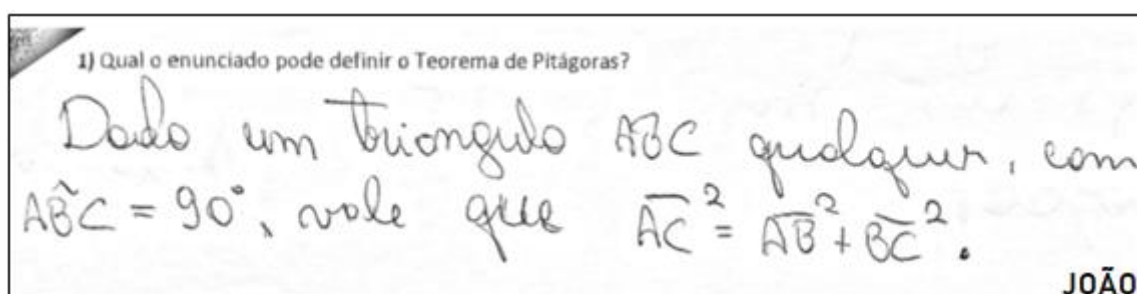 1) Qual o enunciado pode definir o Teorema de Pitágoras?
Dado um triangulo ABC qualquer, com
AB̂C = 90°, vale que A̅C̅² = A̅B̅² + B̅C̅².
JOÃO